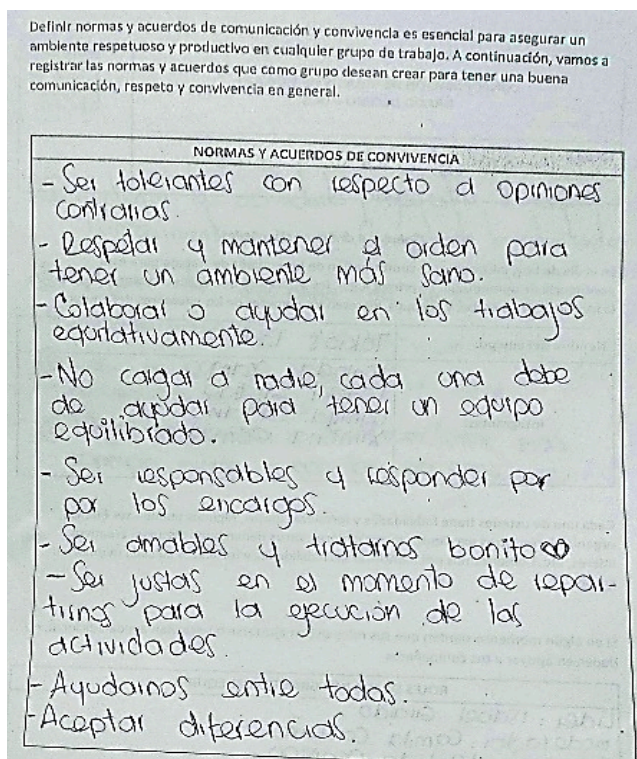 Definir normas y acuerdos de comunicación y convivencia es esencial para asegurar un
ambiente respetuoso y productivo en cualquier grupo de trabajo. A continuación, vamos a
registrar las normas y acuerdos que como grupo desean crear para tener una buena
comunicación, respeto y convivencia en general.
NORMAS Y ACUERDOS DE CONVIVENCIA
- Ser tolerantes con respecto a opiniones
contrarias.
- Respetar y mantener el orden para
tener un ambiente más sano.
- Colaborar o ayudar en los trabajos
equitativamente.
- No cargar a nadie, cada una debe
de ayudar para tener un equipo
equilibrado.
- Ser responsables y responder por
por los encargos.
- Ser amables y tratarnos bonito
- Ser justas en el momento de repar-
tirnos para la ejecución de las
actividades.
- Ayudarnos entre todas.
- Aceptar diferencias.